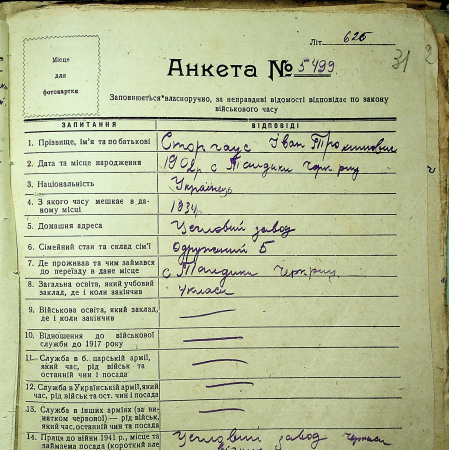 Літ. 626
31
Місце
для
фотокартки
Анкета № 5499
Заповнюється власноручно, за неправдиві відомості відповідає по закону
військового часу
ЗАПИТАННЯ ВІДПОВІДІ
1. Прізвище, ім'я та по батькові Сторчаус Іван Трохимович
2. Дата та місце народження 1902р с
3. Національність Українець
4. З якого часу мешкає в даному місці 1934
5. Домашня адреса завод
6. Сімейний стан та склад сім'ї Одружений 5
7. Де проживав та чим займався
до переїзду в дане місце с
8. Загальна освіта, який учбовий
заклад, де і коли закінчив 4 класи
9. Військова освіта, який заклад,
де і коли закінчив —
10. Відношення до військової
служби до 1917 року —
11. Служба в б. царській армії,
який час, рід військ та
останній чин і посада —
12. Служба в Українській армії, який
час, рід військ та ост. чин і посада —
13. Служба в інших арміях (за ви-
нятком червоної) — рід військ,
який час, останній чин та посада —
14. Праця до війни 1941 р., місце та
займаєма посада (короткий опис завод